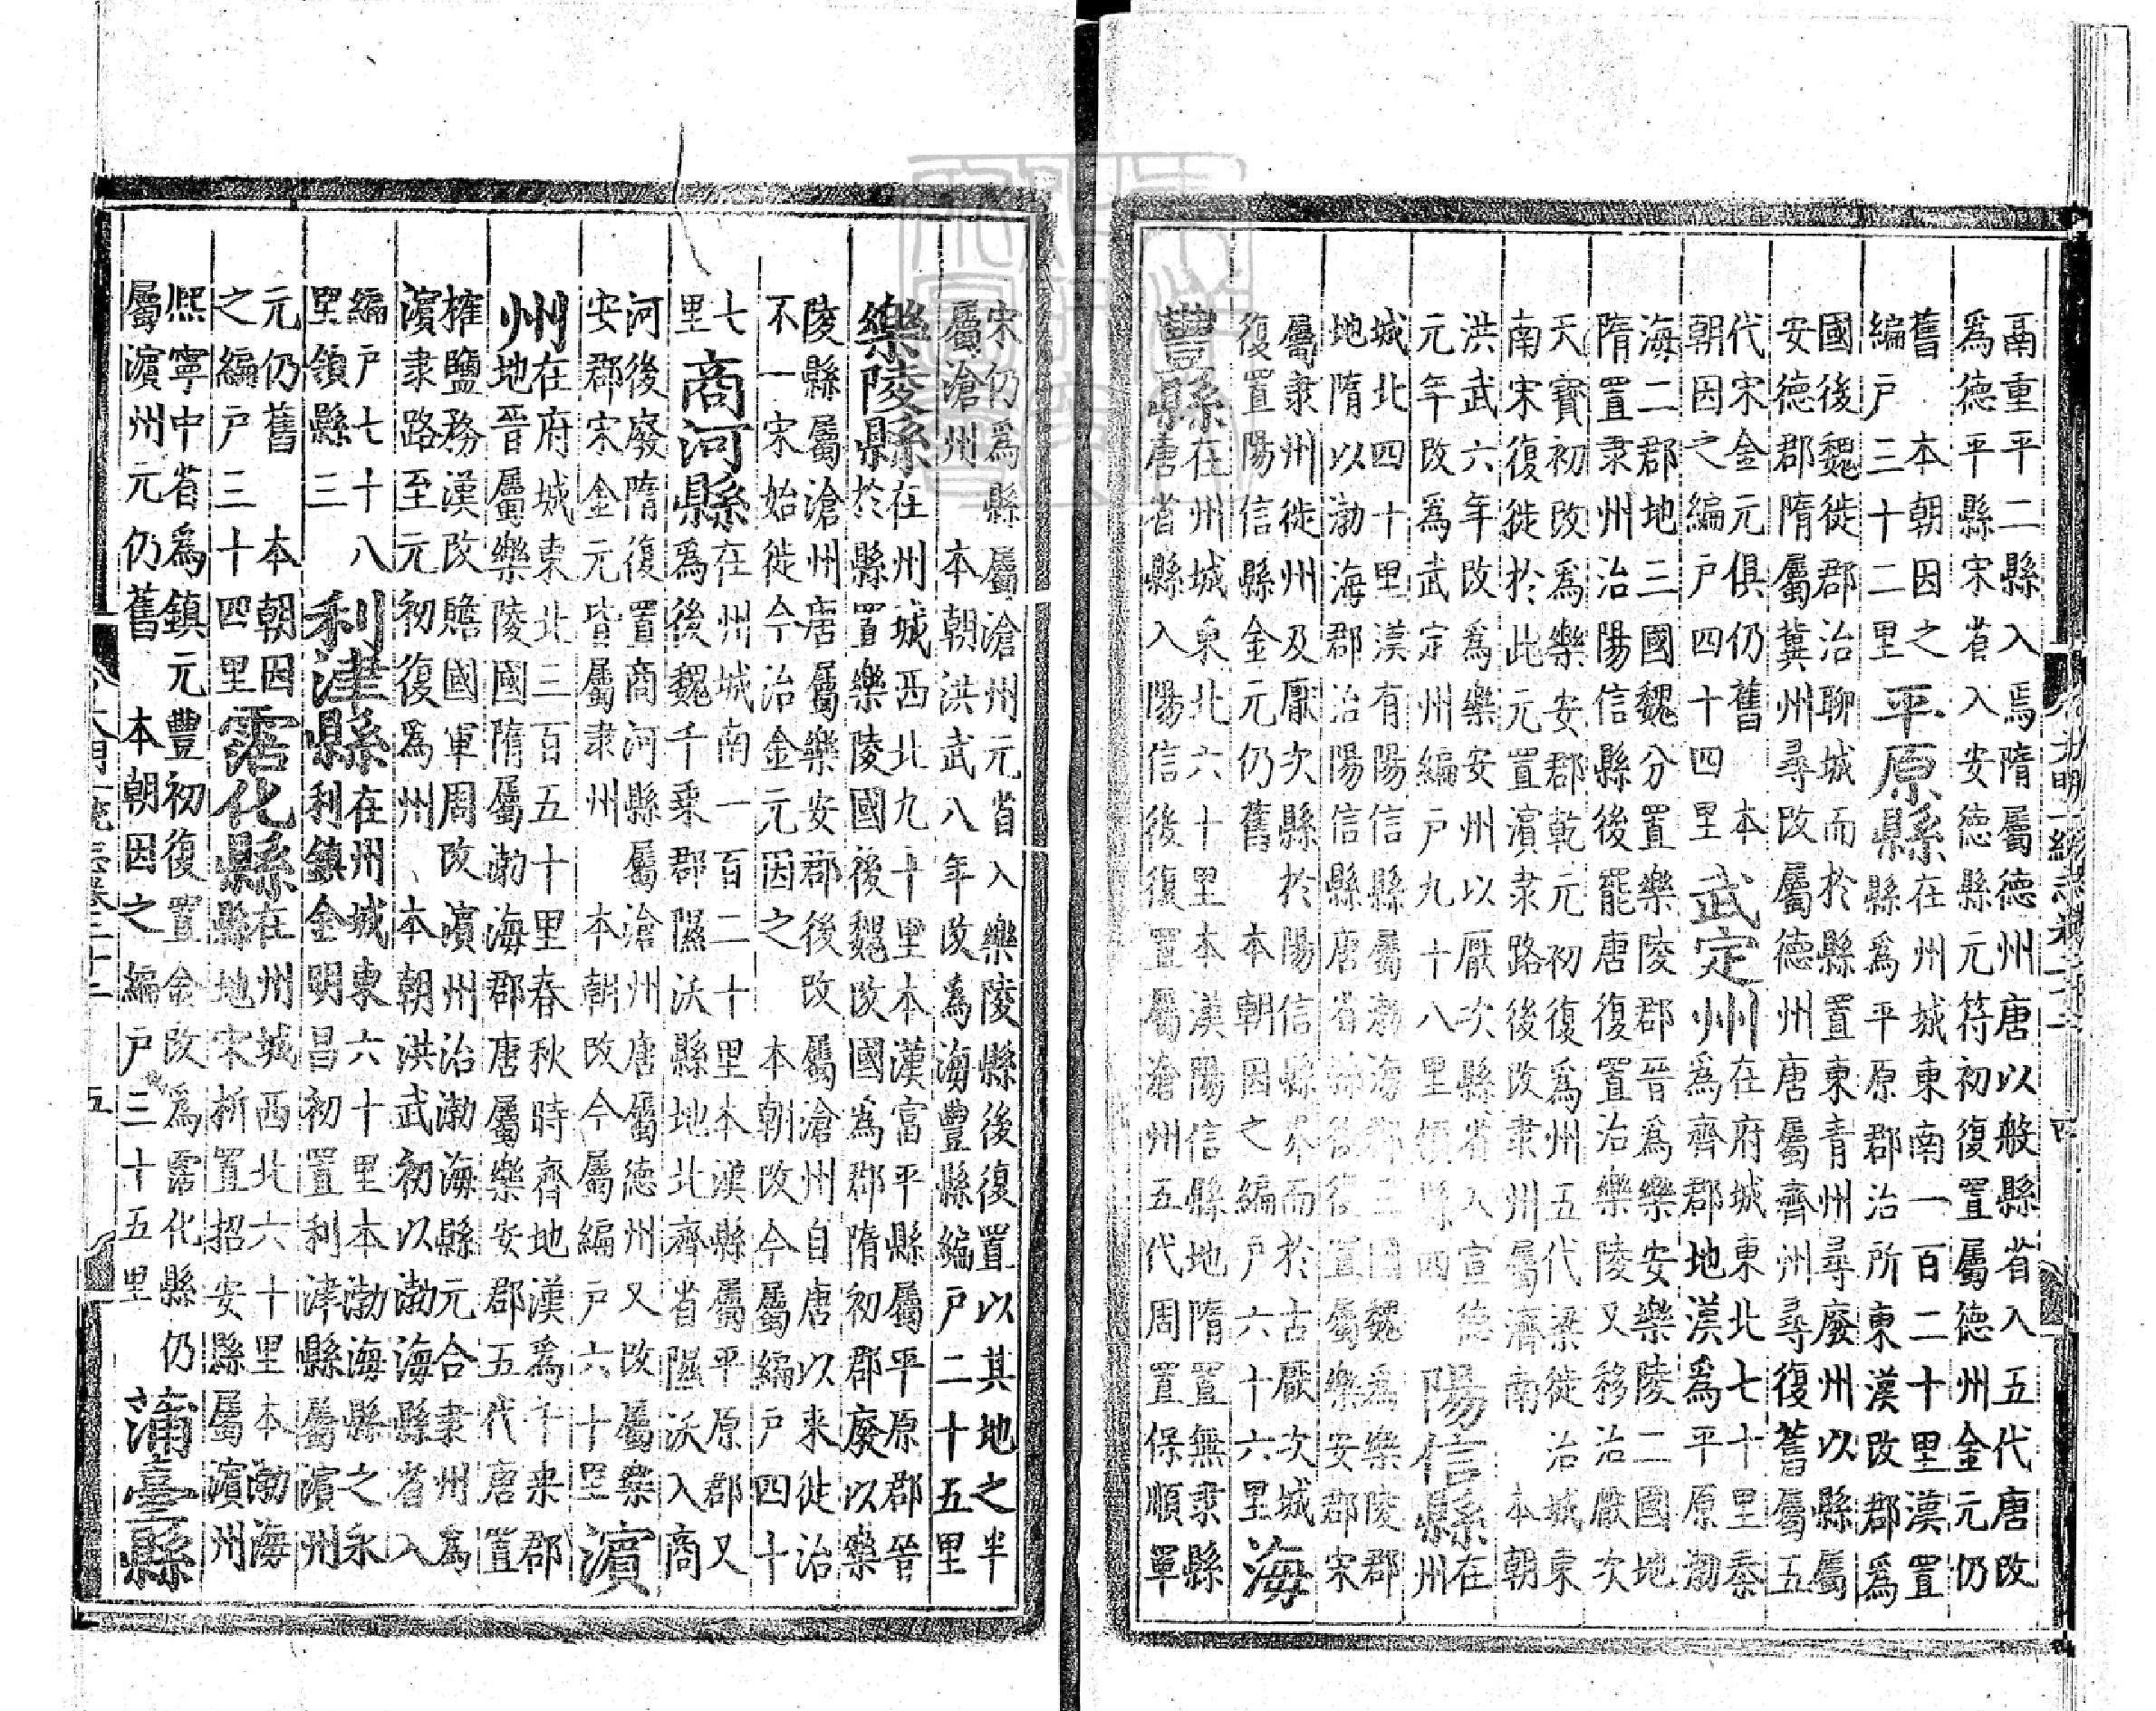 鬲重平二縣入焉隋屬德州唐以般縣省入五代唐改
爲德平縣宋省入安德縣元符初復置屬德州金元仍
舊 本朝因之
編戶三十二里
平原縣
在州城東南一百二十里漢置
縣爲平原郡治所東漢改郡爲
國後魏徙郡治聊城而於縣置東青州尋廢州以縣屬
安德郡隋屬冀州尋改屬德州唐屬齊州尋復舊屬五
代宋金元俱仍舊 本
朝因之編戶四十四里
武定州
在府城東北七十里秦
爲齊郡地漢爲平原渤
海二郡地三國魏分置樂陵郡晉爲樂安樂陵二國地
隋置隶州治陽信縣後罷唐復置治樂陵又移治厭次
天寶初改爲樂安郡乾元初復爲州五代梁徙治城東
南宋復徙於此元置濱隶路後改隶州屬濟南 本朝
洪武六年改爲樂安州以厭次縣省入宣德
元年改爲武定州編戶九十八里領縣四
陽信縣
在
州
城北四十里漢有陽信縣屬渤海郡三國魏爲樂陵郡
地隋以渤海郡治陽信縣唐省縣後復置屬樂安郡宋
屬隶州徙州及厭次縣於陽信縣界而於古厭次城
復置陽信縣金元仍舊 本朝因之編戶六十六里
海
豐縣
在州城東北六十里本漢陽信縣地隋置無隶縣
唐省縣入陽信後復置屬滄州五代周置保順軍
宋仍爲縣屬滄州元省入樂陵縣後復置以其地之半
屬滄州 本朝洪武八年改爲海豐縣編戶二十五里
樂陵縣
在州城西北九十里本漢富平縣屬平原郡晉
於縣置樂陵國後魏改國爲郡隋初郡廢以樂
陵縣屬滄州唐屬樂安郡後改屬滄州自唐以來徙治
不一宋始徙今治金元因之 本朝改今屬編戶四十
七
里
商河縣
在州城南一百二十里本漢縣屬平原郡又
爲後魏千乘郡隰沃縣地北齊省隰沃入商
河後廢隋復置商河縣屬滄州唐屬德州又改屬樂
安郡宋金元皆屬隶州 本朝改今屬編戶六十里
濱
州
在府城東北三百五十里春秋時齊地漢爲千乘郡
地晉屬樂陵國隋屬渤海郡唐屬樂安郡五代唐置
榷鹽務漢改贍國軍周改濱州治渤海縣元合隶州爲
濱隶路至元初復爲州 本朝洪武初以渤海縣省入
編戶七十八
里領縣三
利津縣
在州城東六十里本渤海縣之永
利鎮金明昌初置利津縣屬濱州
元仍舊 本朝因
之編戶三十四里
霑化縣
在州城西北六十里本渤海
縣地宋析置招安縣屬濱州
熙寧中省爲鎮元豐初復置金改爲霑化縣仍
屬濱州元仍舊 本朝因之 編戶三十五里
蒲臺縣